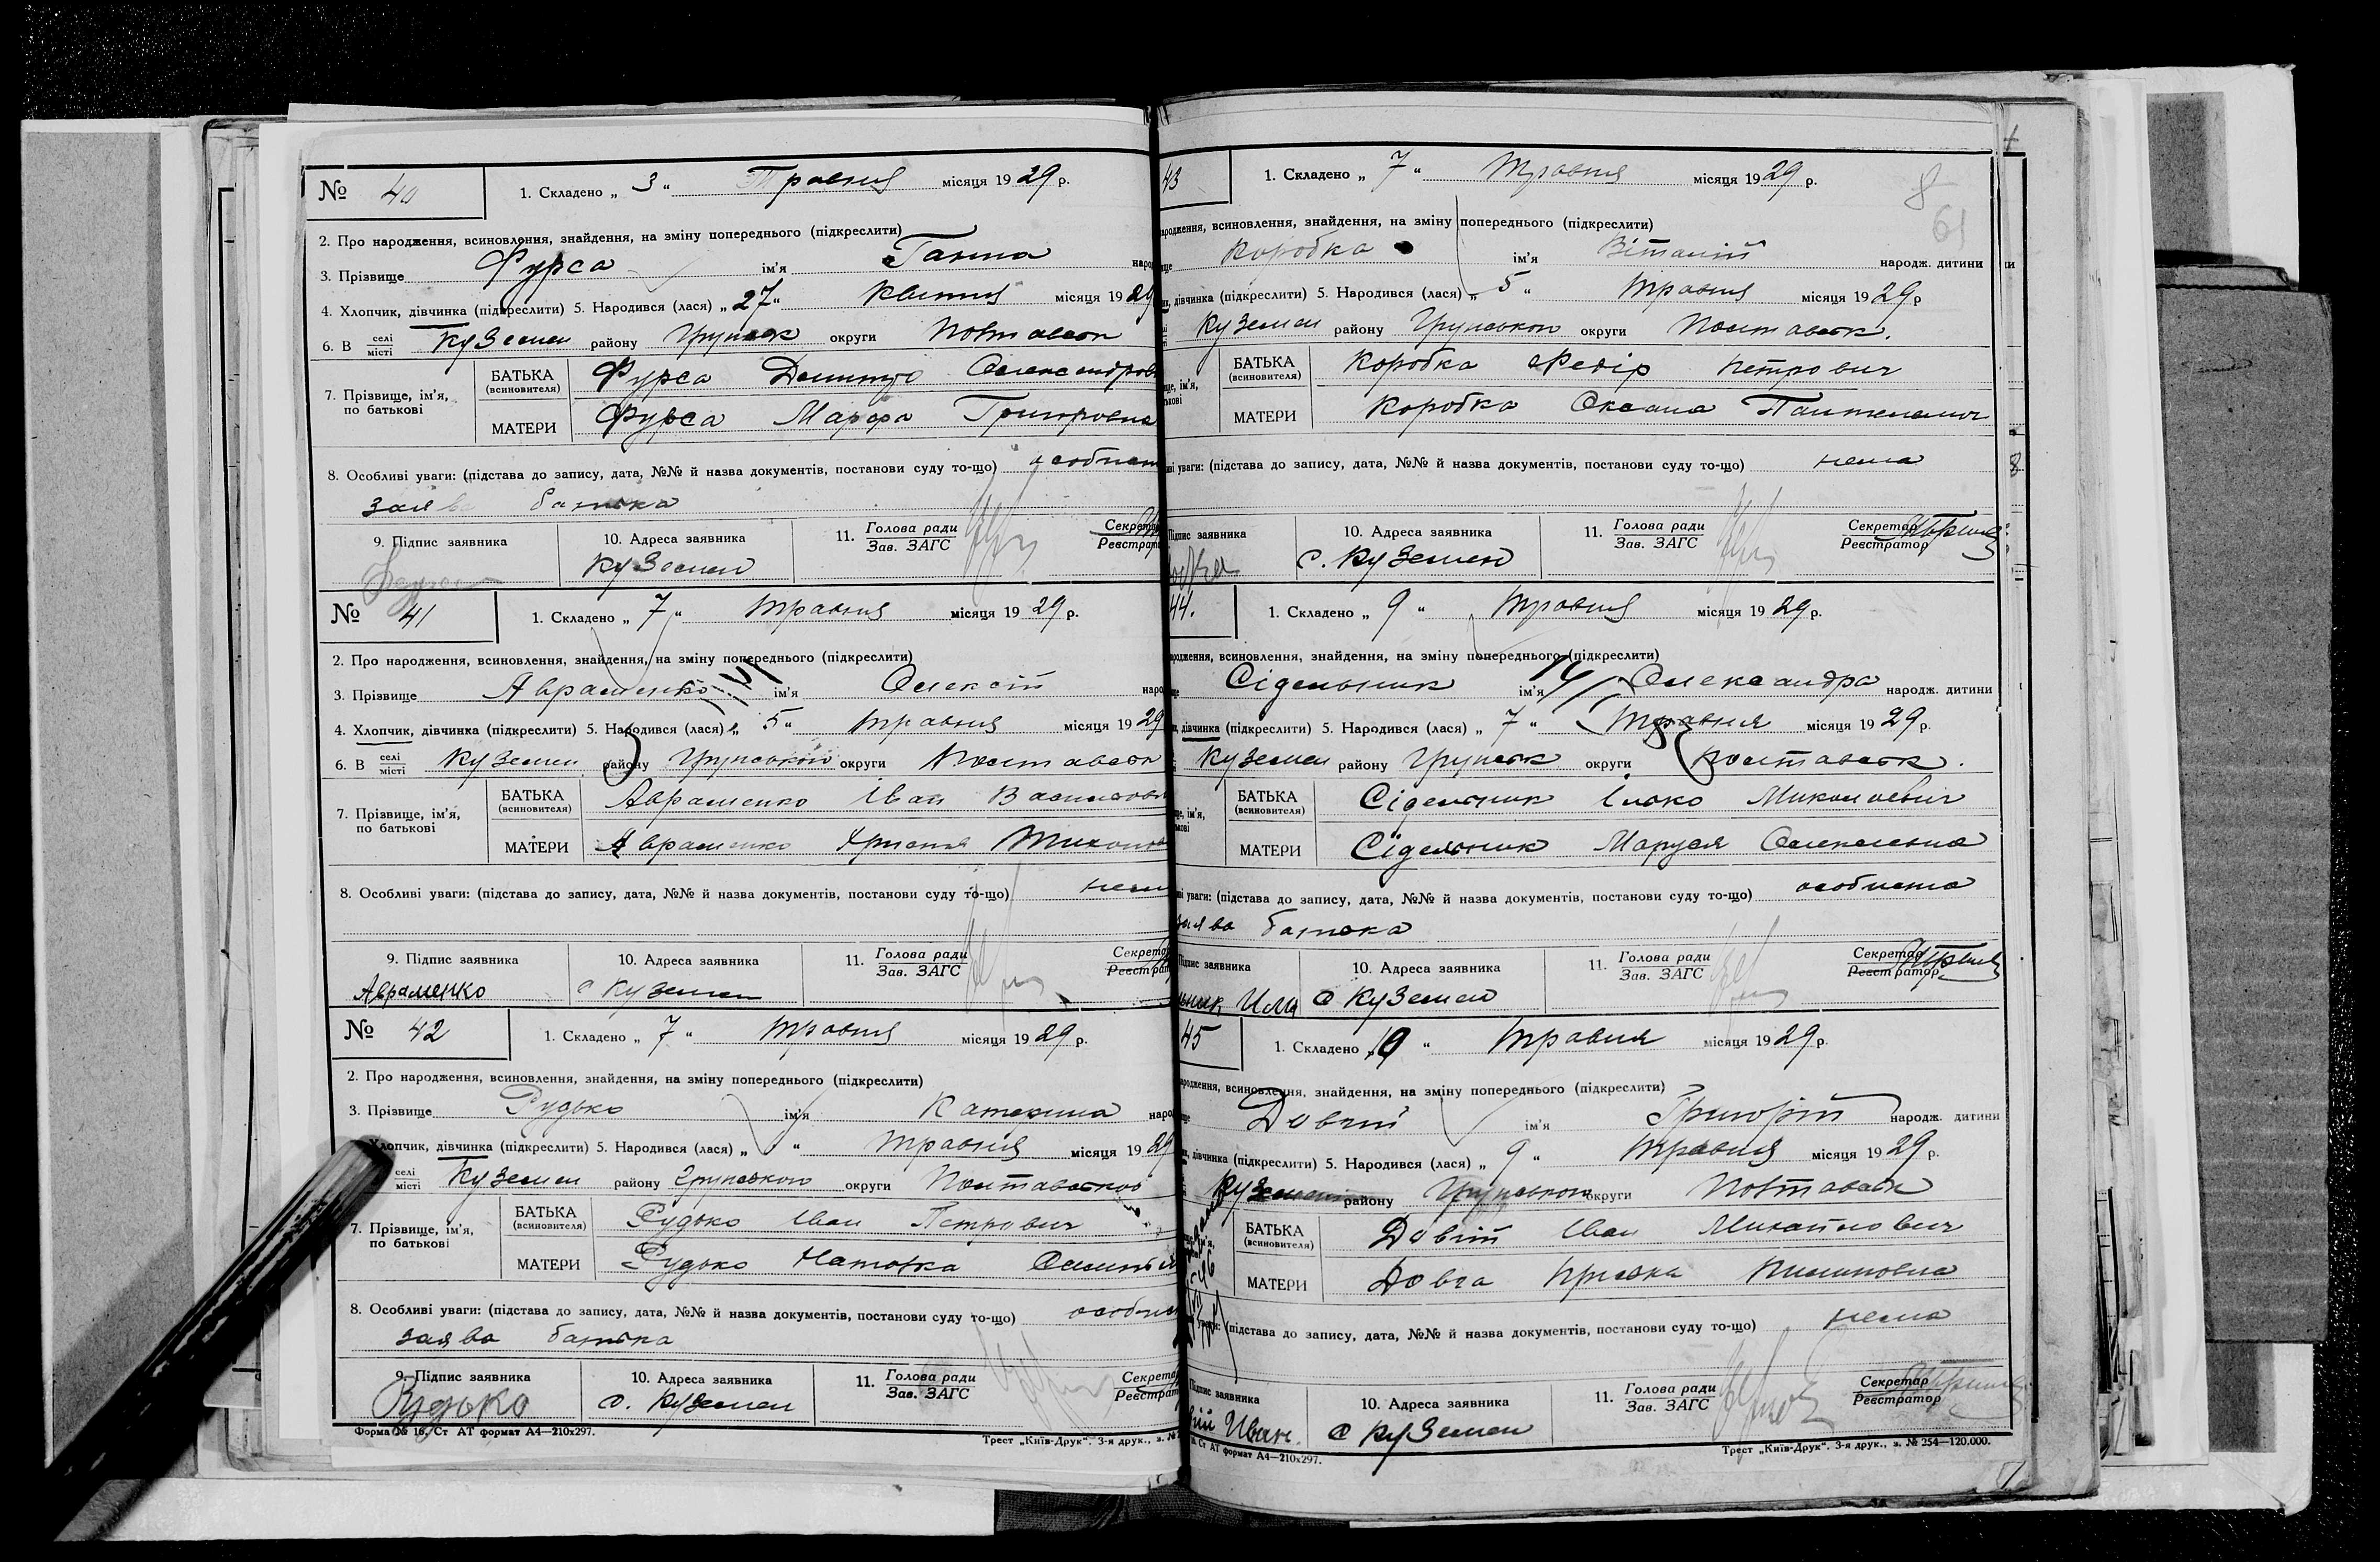 № 40 1. Складено „ 3 “ Травня місяця 19 29 р.
2. Про народження, всиновлення, знайдення, на зміну попереднього (підкреслити)
3. Прізвище Фурса ім'я Ганна наро
4. Хлопчик, дівчинка (підкреслити) 5. Народився (лася) „ 27 “ квітня місяця 19 29
6. В селі місті Куземен району Грунськ округи Полтавськ
7. Прізвище, ім'я, по батькові БАТЬКА (всиновителя) Фурса Дмитро Олександров
МАТЕРИ Фурса Марфа Григоровна
8. Особливі уваги: (підстава до запису, дата, №№ й назва документів, постанови суду то-що) особист
заява батька
9. Підпис заявника 10. Адреса заявника 11. Голова ради Зав. ЗАГС Секретар Реєстрат
Куземен
№ 41 1. Складено „ 7 “ травня місяця 19 29 р.
2. Про народження, всиновлення, знайдення, на зміну попереднього (підкреслити)
3. Прізвище Авраменко ім'я Олексій наро
4. Хлопчик, дівчинка (підкреслити) 5. Народився (лася) „ 5 “ травня місяця 19 29
6. В селі місті Куземен району Грунської округи Полтавськ
7. Прізвище, ім'я, по батькові БАТЬКА (всиновителя) Авраменко Іван Васильов
МАТЕРИ Авраменко Христя
8. Особливі уваги: (підстава до запису, дата, №№ й назва документів, постанови суду то-що) нема
9. Підпис заявника 10. Адреса заявника 11. Голова ради Зав. ЗАГС Секретар Реєстрат
Авраменко с Куземен
№ 42 1. Складено „ 7 “ травня місяця 19 29 р.
2. Про народження, всиновлення, знайдення, на зміну попереднього (підкреслити)
3. Прізвище Рудько ім'я Катерина наро
Хлопчик, дівчинка (підкреслити) 5. Народився (лася) „ “ травня місяця 19 29
селі місті Куземен району Грунського округи Полтавської
7. Прізвище, ім'я, по батькові БАТЬКА (всиновителя) Рудько Іван Петрович
МАТЕРИ Рудько Наталка
8. Особливі уваги: (підстава до запису, дата, №№ й назва документів, постанови суду то-що) особист
заява батька
9. Підпис заявника 10. Адреса заявника 11. Голова ради Зав. ЗАГС Секрета Реєстрат
Рудько с. Куземен
Форма № 16. Ст АТ формат А4—210х297. Трест „Київ-Друк". 3-я друк., з. №
43 1. Складено „ 7 “ травня місяця 19 29 р.
8
61
родження, всиновлення, знайдення, на зміну попереднього (підкреслити)
Коробка ім'я Віталій народж. дитини
дівчинка (підкреслити) 5. Народився (лася) „ 5 “ травня місяця 19 29 р
Куземен району Грунського округи Полтавськ.
БАТЬКА (всиновителя) Коробка Федір Петрович
МАТЕРИ Коробка Оксана
уваги: (підстава до запису, дата, №№ й назва документів, постанови суду то-що) нема
Підпис заявника 10. Адреса заявника 11. Голова ради Зав. ЗАГС Секретар Реєстратор
с. Куземен
44. 1. Складено „ 9 “ травня місяця 19 29 р.
родження, всиновлення, знайдення, на зміну попереднього (підкреслити)
Сідельник ім'я Олександра народж. дитини
дівчинка (підкреслити) 5. Народився (лася) „ 7 “ травня місяця 19 29 р.
Куземен району Грунськ округи Полтавськ.
БАТЬКА (всиновителя) Сідельник Ілько Миколаєвич
МАТЕРИ Сідельник Маруся Олексієвна
уваги: (підстава до запису, дата, №№ й назва документів, постанови суду то-що) особиста
заява батька
Підпис заявника 10. Адреса заявника 11. Голова ради Зав. ЗАГС Секретар Реєстратор
с Куземен
45 1. Складено „ 10 “ травня місяця 19 29 р.
родження, всиновлення, знайдення, на зміну попереднього (підкреслити)
Довгий ім'я Григорій народж. дитини
дівчинка (підкреслити) 5. Народився (лася) „ 9 “ травня місяця 19 29 р.
Куземен району Грунського округи Полтавськ
БАТЬКА (всиновителя) Довгий Іван Михайлович
МАТЕРИ Довга Пилиповна
(підстава до запису, дата, №№ й назва документів, постанови суду то-що) нема
Підпис заявника 10. Адреса заявника 11. Голова ради Зав. ЗАГС Секретар Реєстратор
Иван. с Куземен
Ст АТ формат А4—210х297. Трест „Київ-Друк". 3-я друк., з. № 254—120.000.